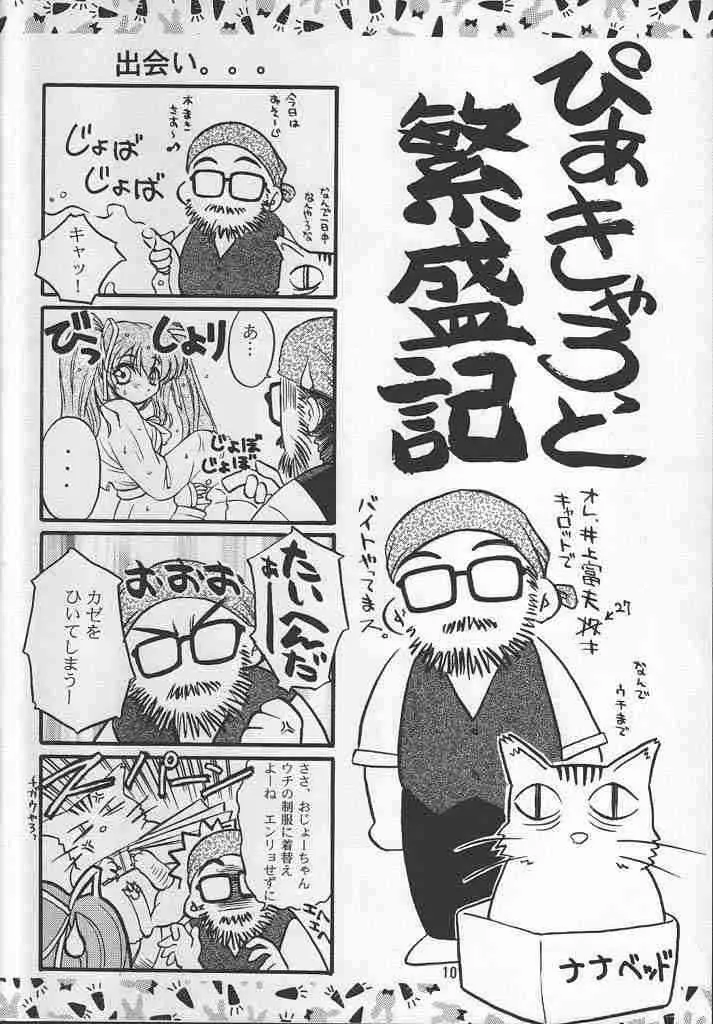 ぴあきゃろっと
繁盛記
オレ、井上富夫
27
キャロットで
バイトやってまス。
なんで
ウチまで
ナナベッド
10
出会い。。。
今日は
水まき
さお〜♪
なんで一日中
なんやろな
じょば
じょば
キャッ！
あ…
じょり
びっ
じょぼ
じょぼ
・・・
たいへんだぁー
おおお
カゼを
ひいてしまうー
ささ、おじょーちゃん
ウチの制服に着替え
よーね エンリョせずに
エヘ
エヘ
スパーン
チガウやろ？